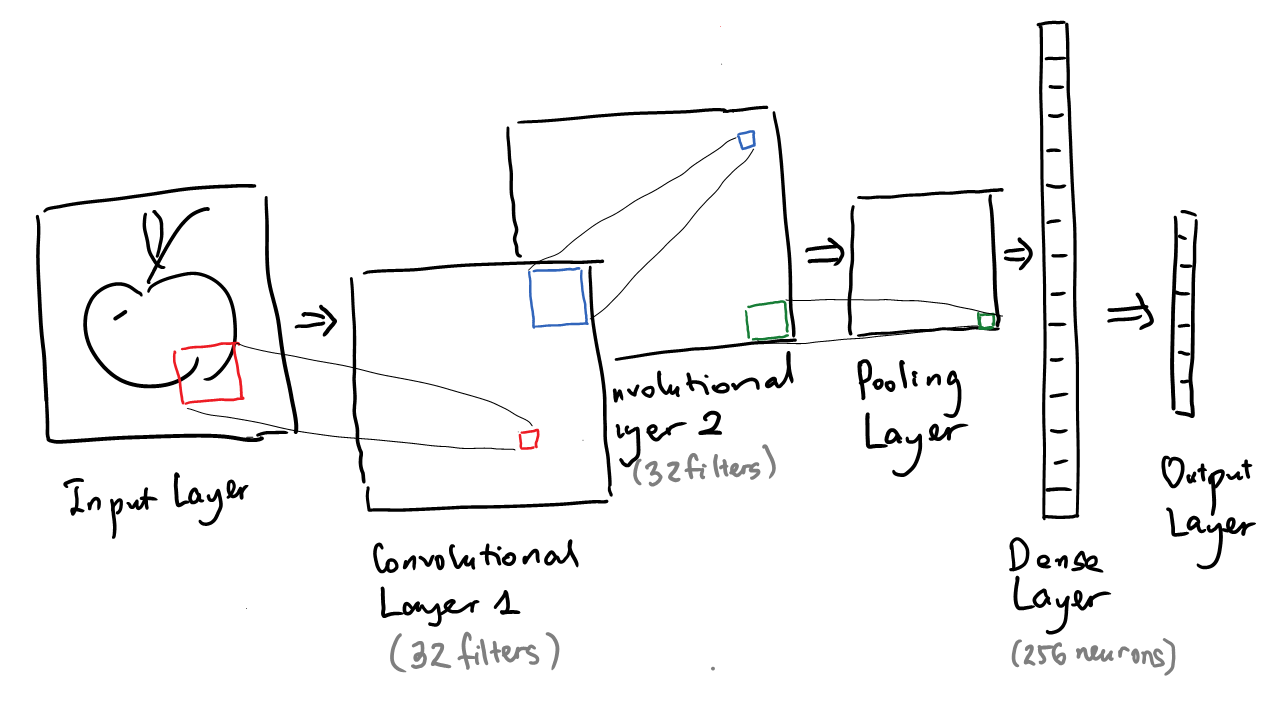 Input Layer
Convolutional
Layer 1
(32 filters)
nvolutional
yer 2
(32 filters)
Pooling
Layer
Dense
Layer
(256 neurons)
Output
Layer